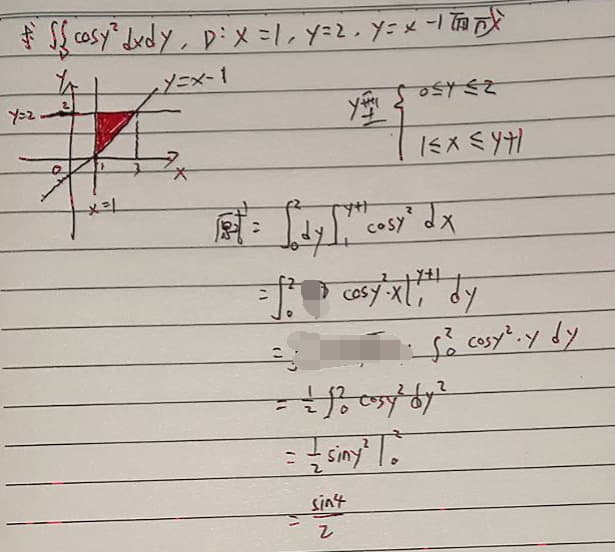 求 ∬ cosy² dxdy, D: x=1, y=2, y=x-1 围成
y
y=x-1
y=2
2
0
1
3
x
x=1
y型 { 0≤y≤2
1≤x≤y+1
原式 = ∫₀² dy ∫₁^{y+1} cosy² dx
= ∫₀² cosy²·x |₁^{y+1} dy
= ∫₀² cosy²·y dy
= 1/2 ∫₀² cosy² dy²
= 1/2 siny² |₀²
= sin4/2